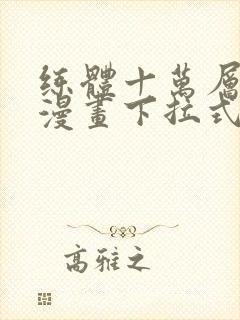 练體十萬層
漫畫下拉式
高雅之